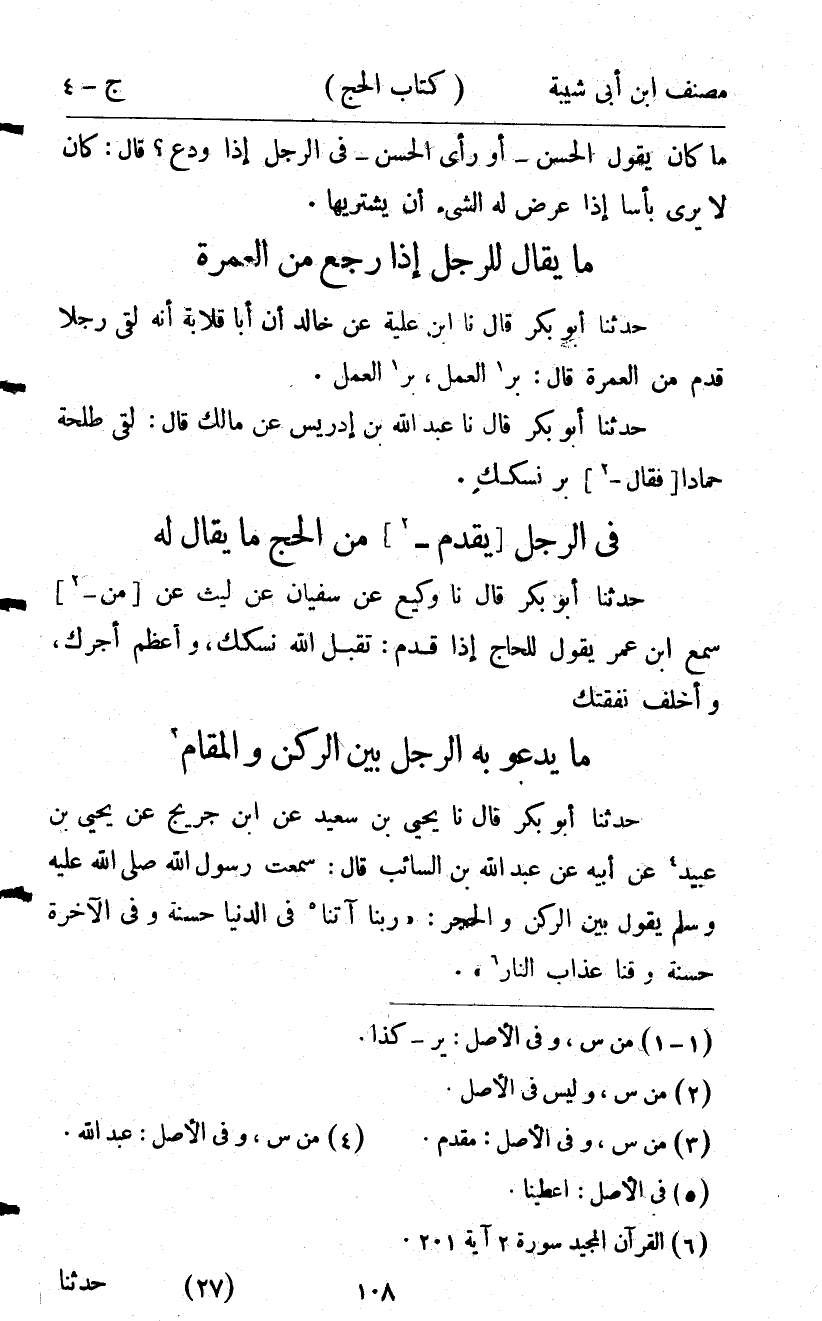 مصنف ابن أبى شيبة ( كتاب الحج ) ج - ٤
ما كان يقول الحسن - أو رأى الحسن - فى الرجل إذا ودع ؟ قال : كان
لا يرى بأسا إذا عرض له الشىء أن يشتريها .
ما يقال للرجل إذا رجع من العمرة
حدثنا أبو بكر قال نا ابن علية عن خالد أن أبا قلابة أنه لقى رجلا
قدم من العمرة قال : بر١ العمل ، بر١ العمل .
حدثنا أبو بكر قال نا عبد الله بن إدريس عن مالك قال : لقى طلحة
حمادا [ فقال -٢ ] بر نسكك .
فى الرجل [ يقدم -٢ ] من الحج ما يقال له
حدثنا أبو بكر قال نا وكيع عن سفيان عن ليث عن [ من -٢ ]
سمع ابن عمر يقول للحاج إذا قدم : تقبل الله نسكك ، و أعظم أجرك ،
و أخلف نفقتك
ما يدعو به الرجل بين الركن و المقام٢
حدثنا أبو بكر قال نا يحيى بن سعيد عن ابن جريج عن يحيى بن
عبيد٤ عن أبيه عن عبد الله بن السائب قال : سمعت رسول الله صلى الله عليه
و سلم يقول بين الركن و الحجر : « ربنا آتنا٥ فى الدنيا حسنة و فى الآخرة
حسنة و قنا عذاب النار٦ » .
(١-١) من س ، و فى الأصل : ير - كذا .
(٢) من س ، و ليس فى الأصل .
(٣) من س ، و فى الأصل : مقدم . (٤) من س ، و فى الأصل : عبد الله .
(٥) فى الأصل : اعطينا .
(٦) القرآن المجيد سورة ٢ آية ٢٠١ .
١٠٨ (٢٧) حدثنا